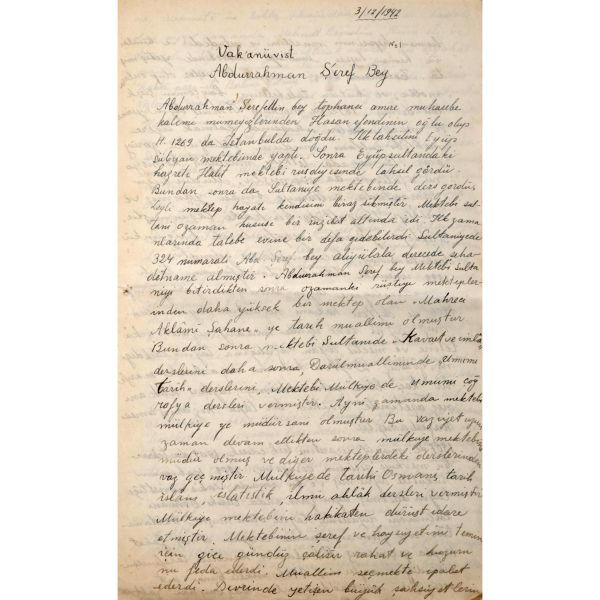 3/12/1942
No:1
Vak'anüvist
Abdurrahman Şeref Bey
Abdurrahman Şerefettin bey tophanei amire muhasebe
kalemi mümeyyizlerinden Hasan efendinin oğlu olup
H. 1269 da İstanbulda doğdu. İlk tahsilini Eyüp
sübyan mektebinde yaptı. Sonra Eyüpsultandaki
hazreti Halit mektebi rüşdiyesinde tahsil gördü.
Bundan sonra da Sultaniye mektebinde ders gördü,
Leyli mektep hayatı kendisini biraz sıkmıştır. Mektebi sul-
tani ozaman hususi bir inzibat altında idi İlk zama
nlarında talebe evine bir defa gidebilirdi Sultaniyede
324 numaralı Abd. Şeref bey aliyülâlâ derecede şeha-
detname almıştır. Abdurrahman Şeref bey Mektebi Sulta
niyi bitirdikten sonra ozamanki rüştiye mektepler-
inden daha yüksek bir mektep olan "Mahreci
Aklâmi Şahane" ye tarih muallimi olmuştur
Bundan sonra mektebi Sultanide "Kavait ve imlâ"
derslerini daha sonra, Darülmualliminde umumi
tarih derslerini, Mektebi Mülkiye de umumi coğ
rafya dersleri vermiştir. Ayni zamanda mektebi
mülkiye ye müdürsani olmuştur Bu vaziyet uzun
zaman devam ettikten sonra mülkiye mektebine
müdür olmuş ve diğer mekteplerdeki derslerinden
vaz geçmiştir Mülkiyede Tarihi Osmani, tarihi
islâm, istatistik, ilmi ahlâk dersleri vermiştir
Mülkiye mektebini hakikaten dürüst idare
etmiştir. Mektebinin şeref ve haysiyetini temin
için gice gündüz çalışır rahat ve huzuru
nu feda ederdi. Muallim seçmekte isabet
ederdi. Devrinde yetişen büyük şahsiyetlerin